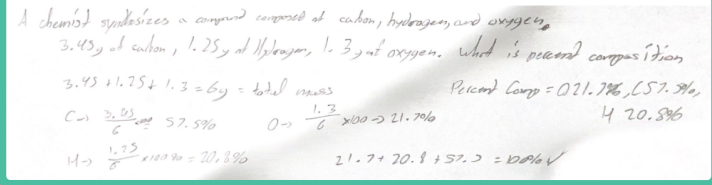 A chemist synthesizes a compound composed of carbon, hydrogen, and oxygen.
3.45g of carbon, 1.25g of Hydrogen, 1.3g of oxygen. What is percent composition
3.45 + 1.25 + 1.3 = 6g = total mass
Percent Comp = O 21.7%, C 57.5%,
H 20.8%
C → 3.45/6 57.5%
O → 1.3/6 x100 → 21.7%
H → 1.25/6 x100% = 20.8%
21.7 + 20.8 + 57.5 = 100% ✓